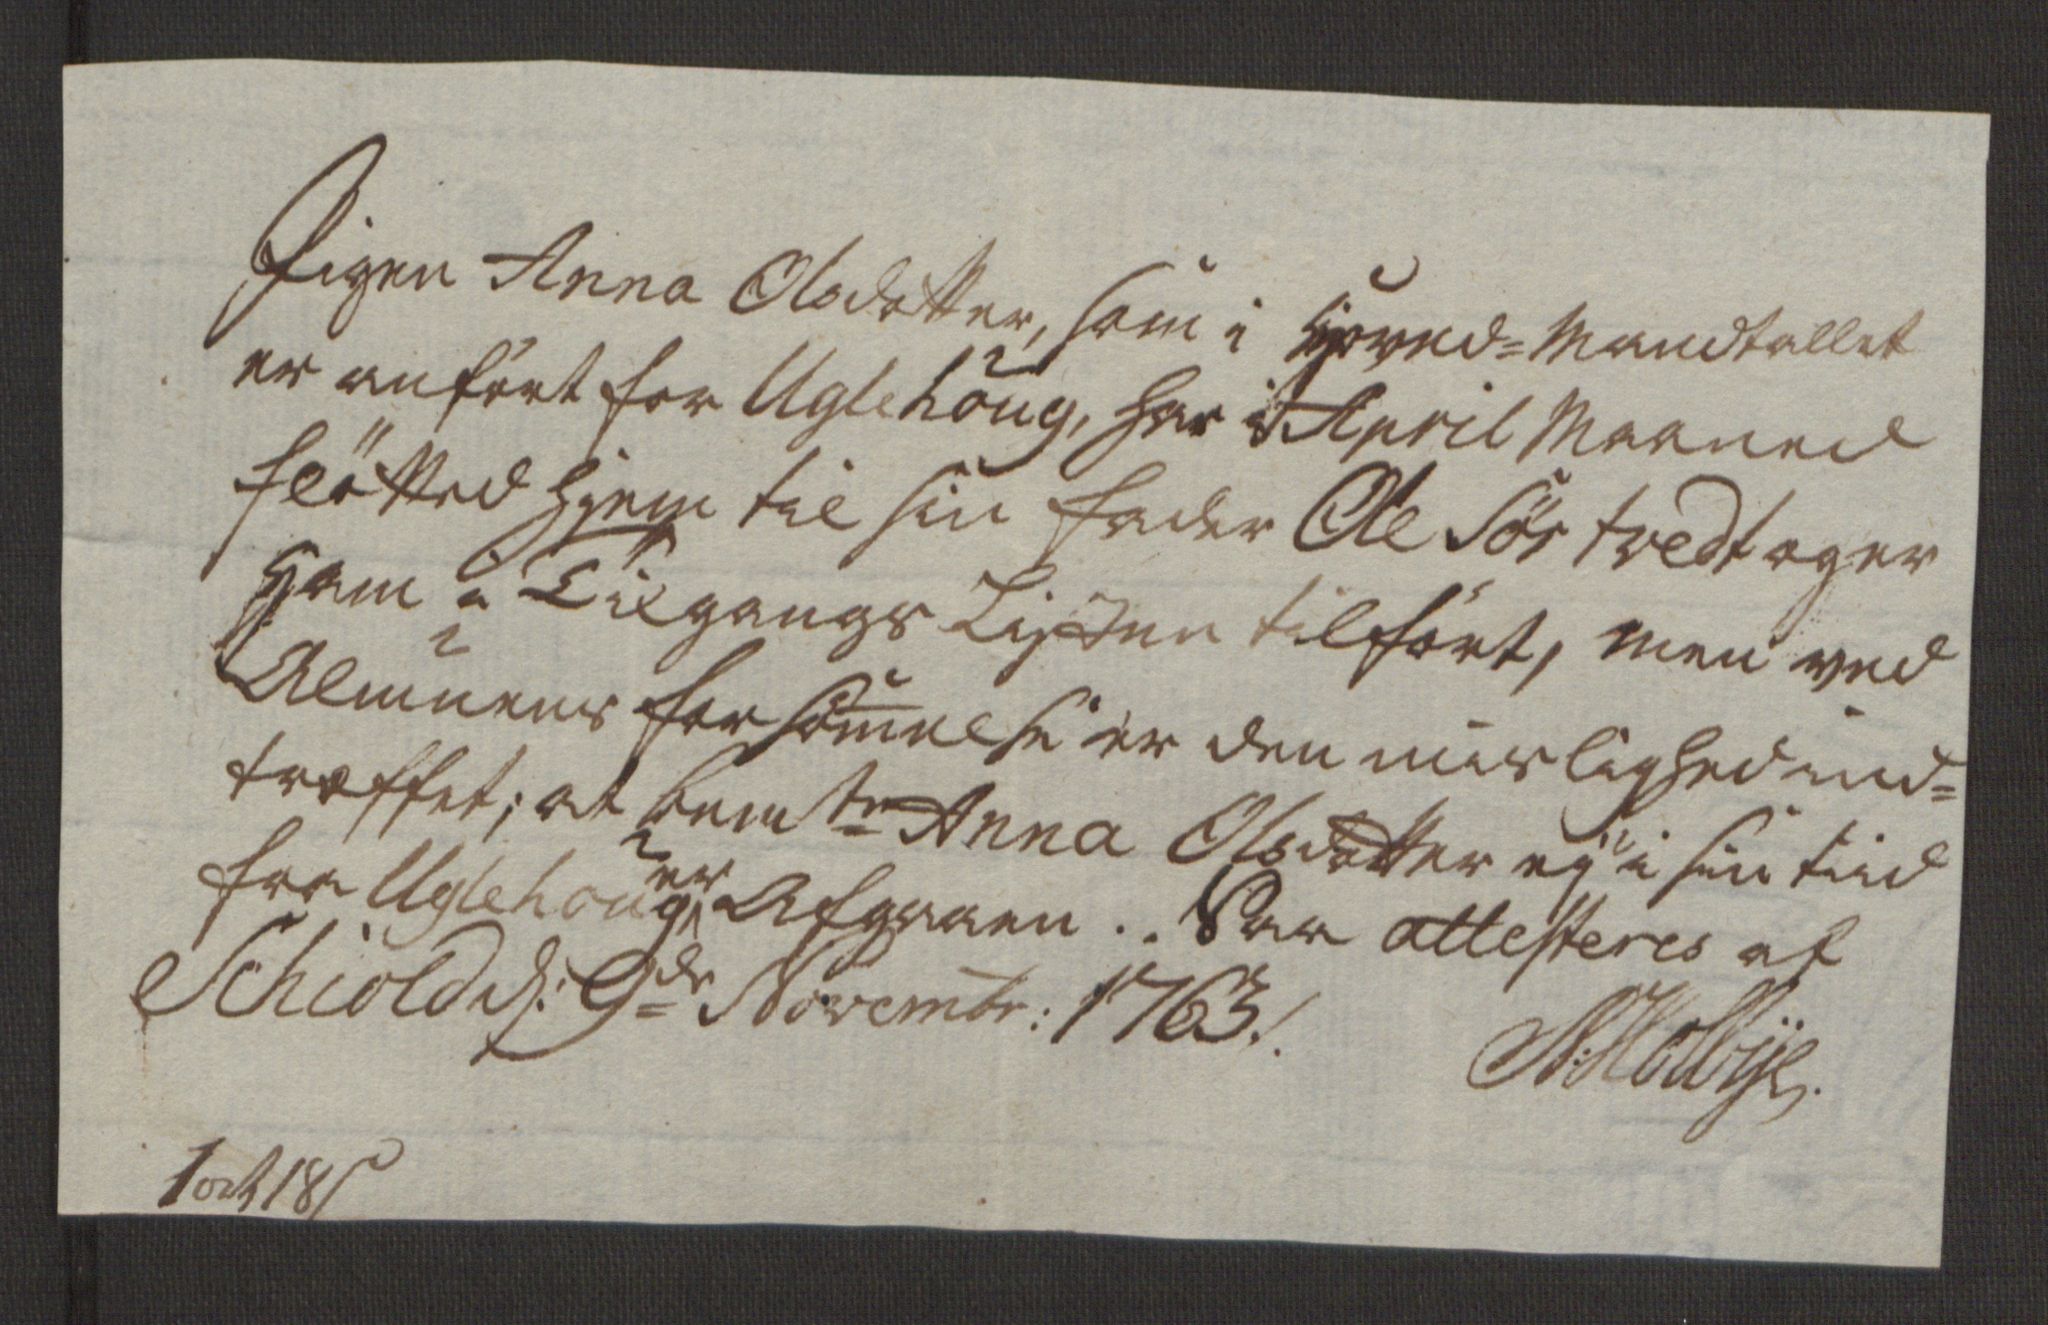 Pigen Anna Olsdotter, som i Hoved=Mandtallet
er anført for Uglehoug, har i April Maaned
fløtted hiem til sin Fader Ole Sør tvedt og er
ham i Tilgangs Listen tilført, men ved
Almuens forsømmelse er den uurlighed ind=
træffet; at bemte Anna Olsdotter ey i sin tiid
fra Uglehoug er Afgaaen .. Saa attesteres af
Schiold d: 9de Novembr: 1763.
N: Holbye.
1 ort 18 s